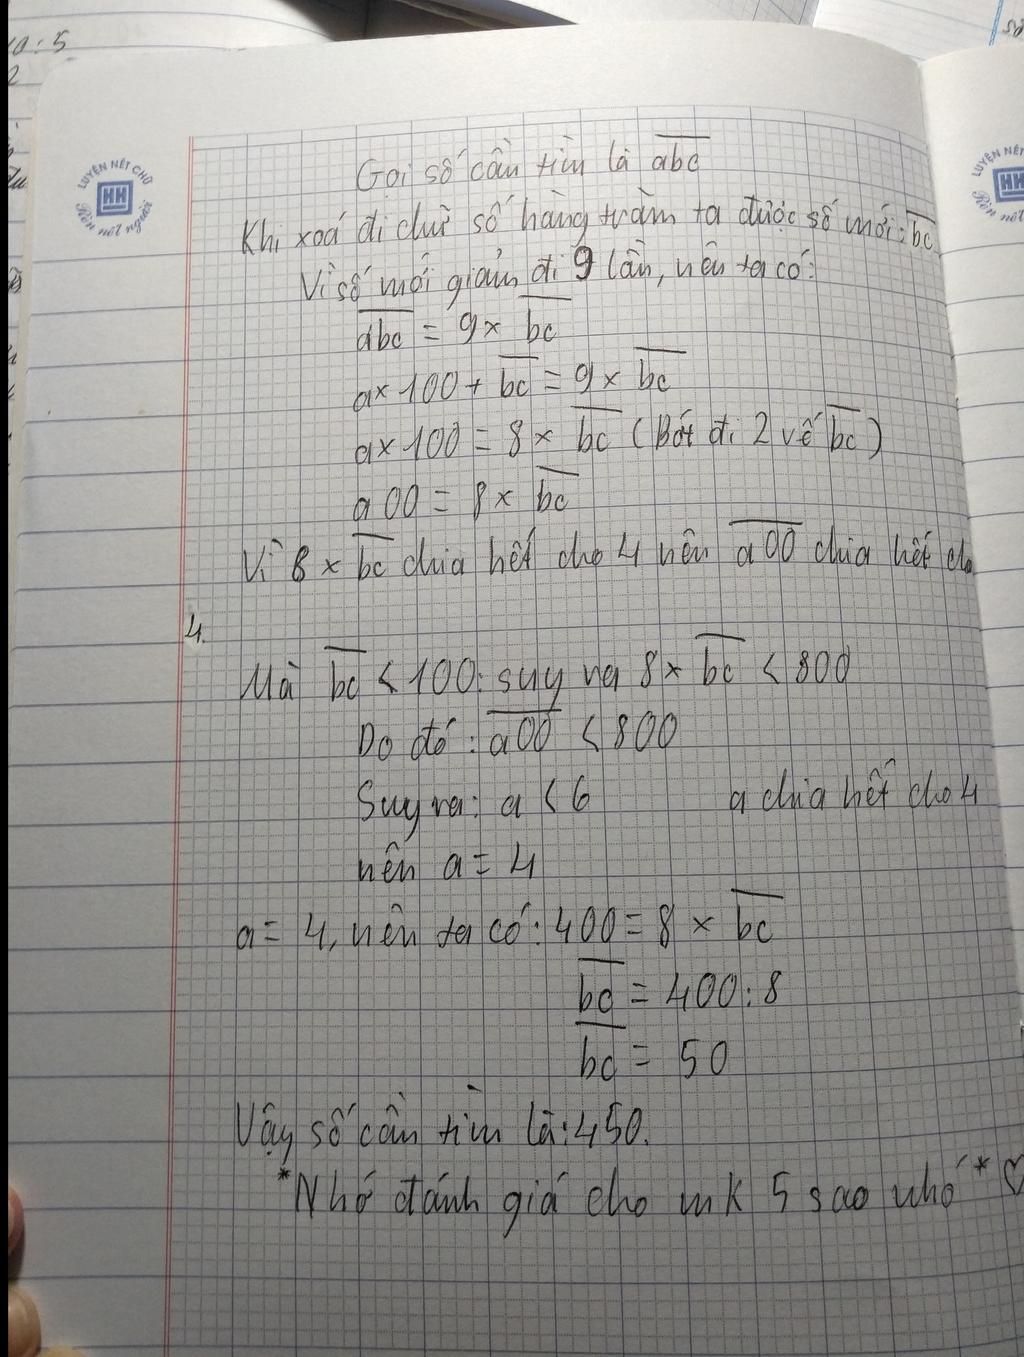 a : 5
LUYỆN NÉT CHỮ
HH
Rèn nết người
Gọi số cần tìm là abc
Khi xoá đi chữ số hàng trăm ta được số mới: bc
Vì số mới giảm đi 9 lần, nên ta có:
abc = 9 × bc
a × 100 + bc = 9 × bc
a × 100 = 8 × bc (Bớt đi 2 vế bc)
a00 = 8 × bc
Vì 8 × bc chia hết cho 4 nên a00 chia hết cho
4.
Mà bc < 100: suy ra 8 × bc < 800
Do đó: a00 < 800
Suy ra: a < 6 a chia hết cho 4
nên a = 4
a = 4, nên ta có: 400 = 8 × bc
bc = 400 : 8
bc = 50
Vậy số cần tìm là: 450.
*Nhớ đánh giá cho mk 5 sao nhớ* ♡